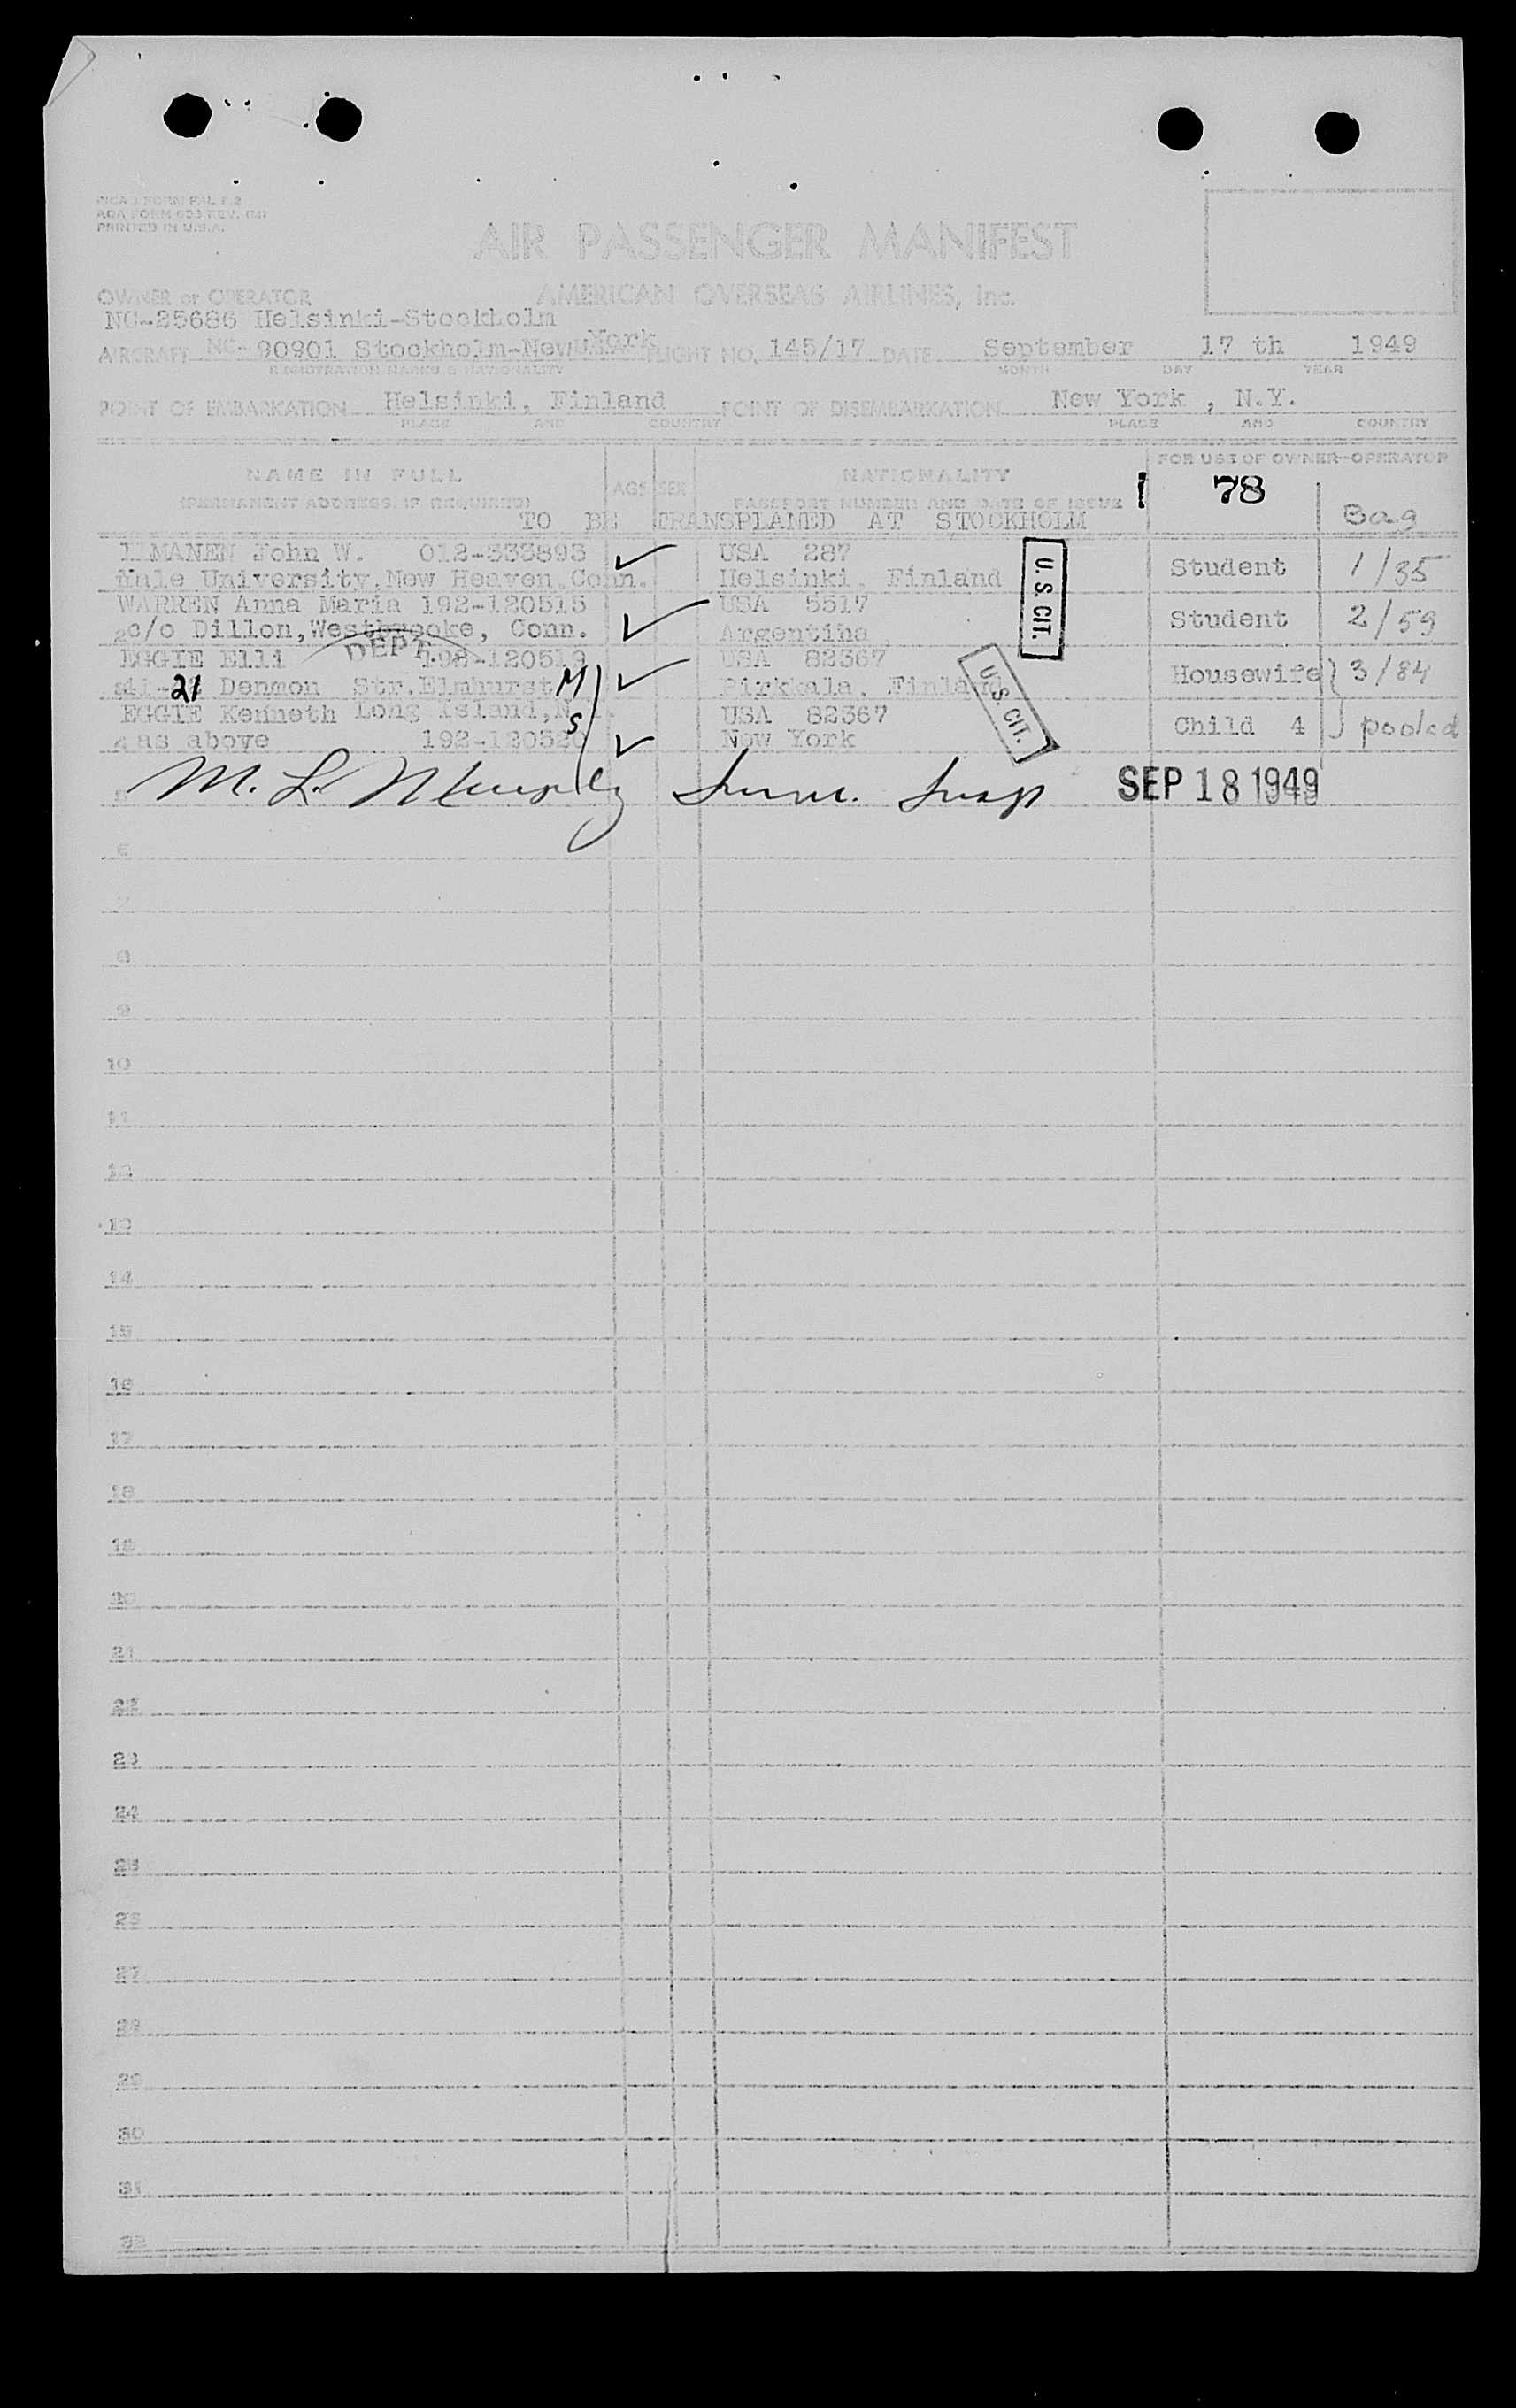 PICAO FORM PAL 2.2
AOA FORM 603 REV. (M)
PRINTED IN U.S.A.
AIR PASSENGER MANIFEST
OWNER or OPERATOR AMERICAN OVERSEAS AIRLINES, Inc.
NC-25686 Helsinki-Stockholm
AIRCRAFT NC- 90901 Stockholm-New York FLIGHT NO. 145/17 DATE September 17 th 1949
REGISTRATION MARKS & NATIONALITY MONTH DAY YEAR
POINT OF EMBARKATION Helsinki, Finland POINT OF DISEMBARKATION New York , N.Y.
PLACE AND COUNTRY PLACE AND COUNTRY
NAME IN FULL AGE SEX NATIONALITY FOR USE OF OWNER-OPERATOR
(PERMANENT ADDRESS, IF REQUIRED) PASSPORT NUMBER AND DATE OF ISSUE 78
TO BE TRANSPLANED AT STOCKHOLM Bag
John W. 012-333893 USA 287 U.S. CIT. Student 1/35
University, New Heaven, Conn. Helsinki, Finland
WARREN Anna Maria 192-120515 USA 5517 Student 2/59
2 c/o Dillon, Westbrooke, Conn. Argentina
DEPT.
EGGIE Elli 198-120519 USA 82367 U.S. CIT. Housewife 3/84
21 Denmon Str. Elmhurst M Pirkkala, Finland
EGGIE Kenneth Long Island, N. S USA 82367 Child 4 pooled
as above 192-120520 New York
5 M. L. Imm. Insp SEP 18 1949
6
7
8
9
10
11
12
13
14
15
16
17
18
19
20
21
22
23
24
25
26
27
28
29
30
31
32